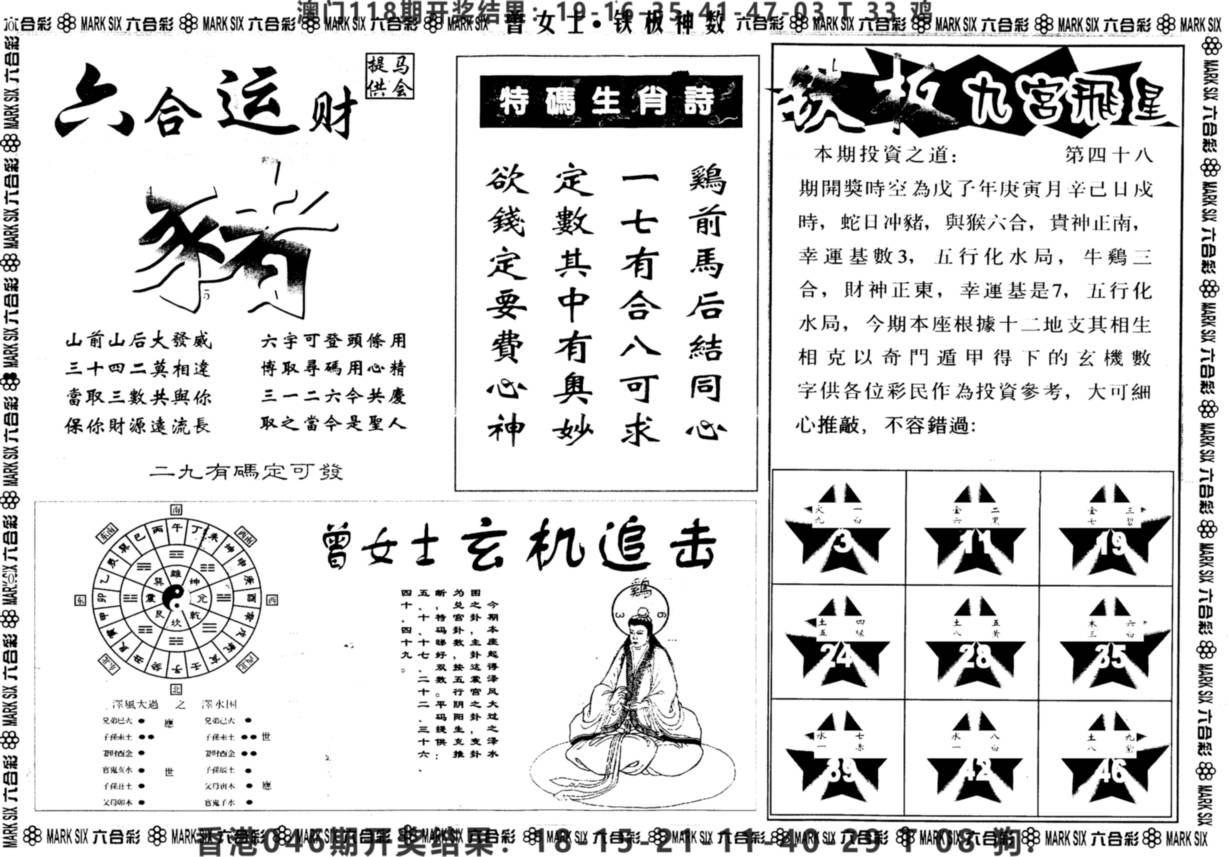 澳门118期开奖结果：19-16-35-41-47-03 T 33 鸡
曾女士·铁板神数
六合运财
提供
马会
猪
山前山后大發威
三十四二莫相違
當取三數共與你
保你財源遠流長
六字可登頭條用
博取尋碼用心精
三一二六今共慶
取之當今是聖人
二九有碼定可發
特碼生肖詩
鷄前馬后結同心
一七有合八可求
定數其中有奥妙
欲錢定要費心神
鉄板九宮飛星
本期投資之道： 第四十八
期開獎時空為戊子年庚寅月辛己日戌
時，蛇日冲豬，與猴六合，貴神正南，
幸運基數3，五行化水局，牛鷄三
合，財神正東，幸運基是7，五行化
水局，今期本座根據十二地支其相生
相克以奇門遁甲得下的玄機數
字供各位彩民作為投資參考，大可細
心推敲，不容錯過：
火 一
九 白
3
金 二
六 黑
11
金 三
七 碧
19
土 四
五 绿
24
土 五
八 黃
28
木 六
三 白
35
水 七
一 赤
39
水 八
一 白
42
土 九
八 紫
46
曾女士玄机追击
今期本座起得泽风大过之泽水
困之卦主卦这震宫之卦变卦
为兑宫卦，数按五行阴阳生克推
断，特码睇好双数。平码提供：
五、十、十七、二十二、三十六、
四十、四十九。
鷄
3
6
南
西南
西
西北
北
东北
东
东南
午 丁 未 坤 申 庚 酉 辛 戌 乾 亥 壬 子 癸 丑 艮 寅 甲 卯 乙 辰 巽 巳 丙
離 坤 兌 乾 坎 艮 震 巽
澤風大過 之 澤水困
兄弟巳火 應 兄弟巳火
子孫未土 子孫未土 世
妻財酉金 妻財酉金
官鬼亥水 世 子孫辰土
子孫丑土 父母寅木 應
父母卯木 官鬼子水
MARK SIX 六合彩
香港046期开奖结果：18-15-21-11-40-29 T 08 狗.